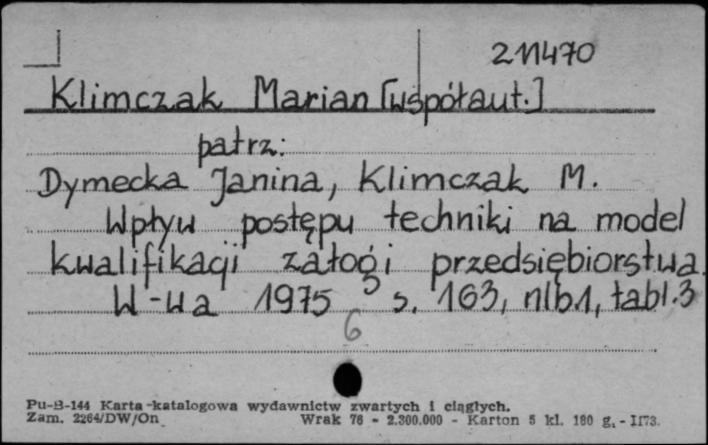 211470
Klimczak Marian [współaut.]
patrz:
Dymecka Janina, Klimczak M.
Wpływ postępu techniki na model
kwalifikacji załogi przedsiębiorstwa.
W-wa 1975 s. 163, nlb.1, tabl.3
6
Pu-B-144 Karta-katalogowa wydawnictw zwartych i ciągłych.
Zam. 2264/DW/On Wrak 76 - 2.300.000 - Karton 5 kl. 180 g. - II73.